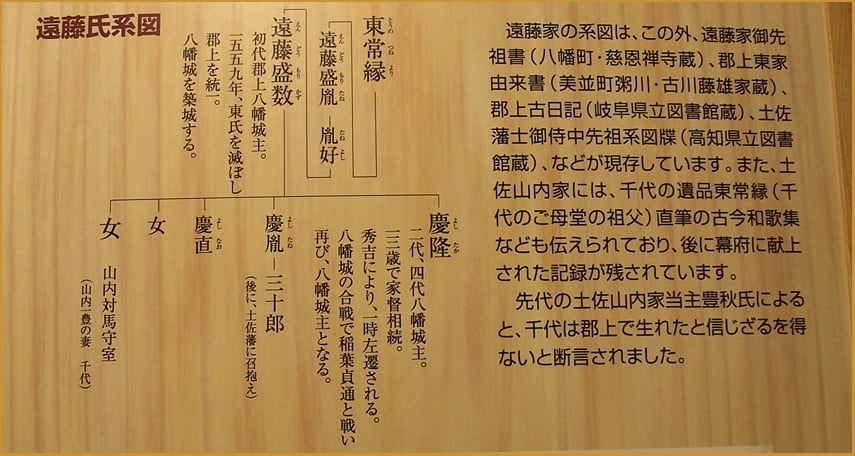 遠藤氏系図
遠藤家の系図は、この外、遠藤家御先
祖書（八幡町・慈恩禅寺蔵）、郡上東家
由来書（美並町粥川・古川藤雄家蔵）、
郡上古日記（岐阜県立図書館蔵）、土佐
藩士御侍中先祖系図牒（高知県立図書
館蔵）、などが現存しています。また、土
佐山内家には、千代の遺品東常縁（千
代のご母堂の祖父）直筆の古今和歌集
なども伝えられており、後に幕府に献上
された記録が残されています。
先代の土佐山内家当主豊秋氏による
と、千代は郡上で生れたと信じざるを得
ないと断言されました。
東常縁
とうの つね より
遠藤盛胤―胤好
えん どう もり たね たね よし
遠藤盛数
えん どう もり かず
初代郡上八幡城主。
一五五九年、東氏を滅ぼし
郡上を統一。
八幡城を築城する。
慶隆
よし たか
二代、四代八幡城主。
一三歳で家督相続。
秀吉により、一時左遷される。
八幡城の合戦で稲葉貞通と戦い
再び、八幡城主となる。
慶胤―三十郎
よし たね
（後に、土佐藩に召抱え）
慶直
よし なお
女
女
山内対馬守室
（山内一豊の妻 千代）